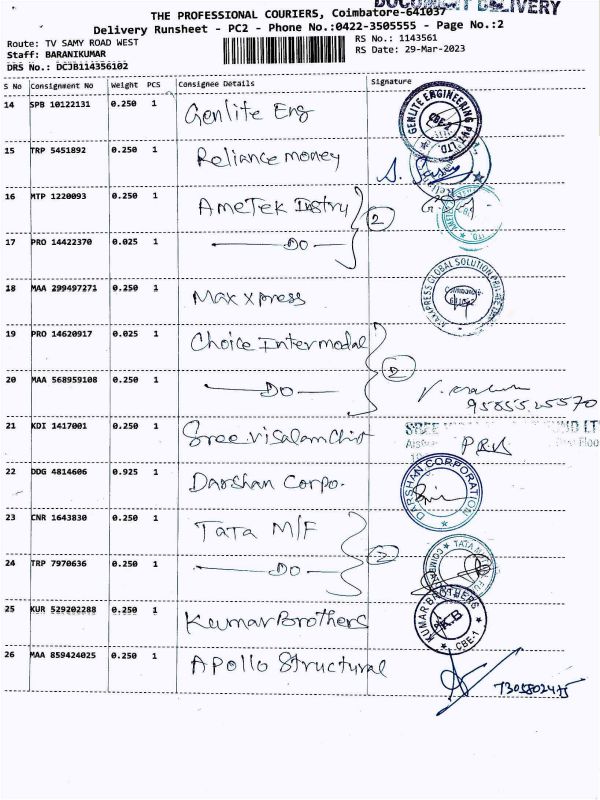 DOCUMENT DELIVERY
THE PROFESSIONAL COURIERS, Coimbatore-641037
Delivery Runsheet - PC2 - Phone No.:0422-3505555 - Page No.:2
Route: TV SAMY ROAD WEST
RS No.: 1143561
Staff: BARANIKUMAR
RS Date: 29-Mar-2023
DRS No.: DCJB114356102
S No Consignment No Weight PCS Consignee Details Signature
14 SPB 10122131 0.250 1 Genlite Eng
GENLITE ENGINEERING PVT. LTD. CBE-2
15 TRP 5451892 0.250 1 Reliance money
16 MTP 1220093 0.250 1 AmeTek Instry 2
17 PRO 14422370 0.025 1 DO
18 MAA 299497271 0.250 1 Maxxpress
MAXXPRESS GLOBAL SOLUTION PRIVATE
19 PRO 14620917 0.025 1 Choice Intermodal 2
20 MAA 568959108 0.250 1 DO
95855 25570
21 KDI 1417001 0.250 1 Sree Visalam Chit
SREE FUND LT
22 DDG 4814606 0.925 1 Darshan Corpo.
DARSHAN CORPORATION
23 CNR 1643830 0.250 1 Tata M/F 2
24 TRP 7970636 0.250 1 DO
25 KUR 529202288 0.250 1 Kumar Brothers
KUMAR BROTHERS K.B CBE-1
26 MAA 859424025 0.250 1 Apollo Structural
7305802475